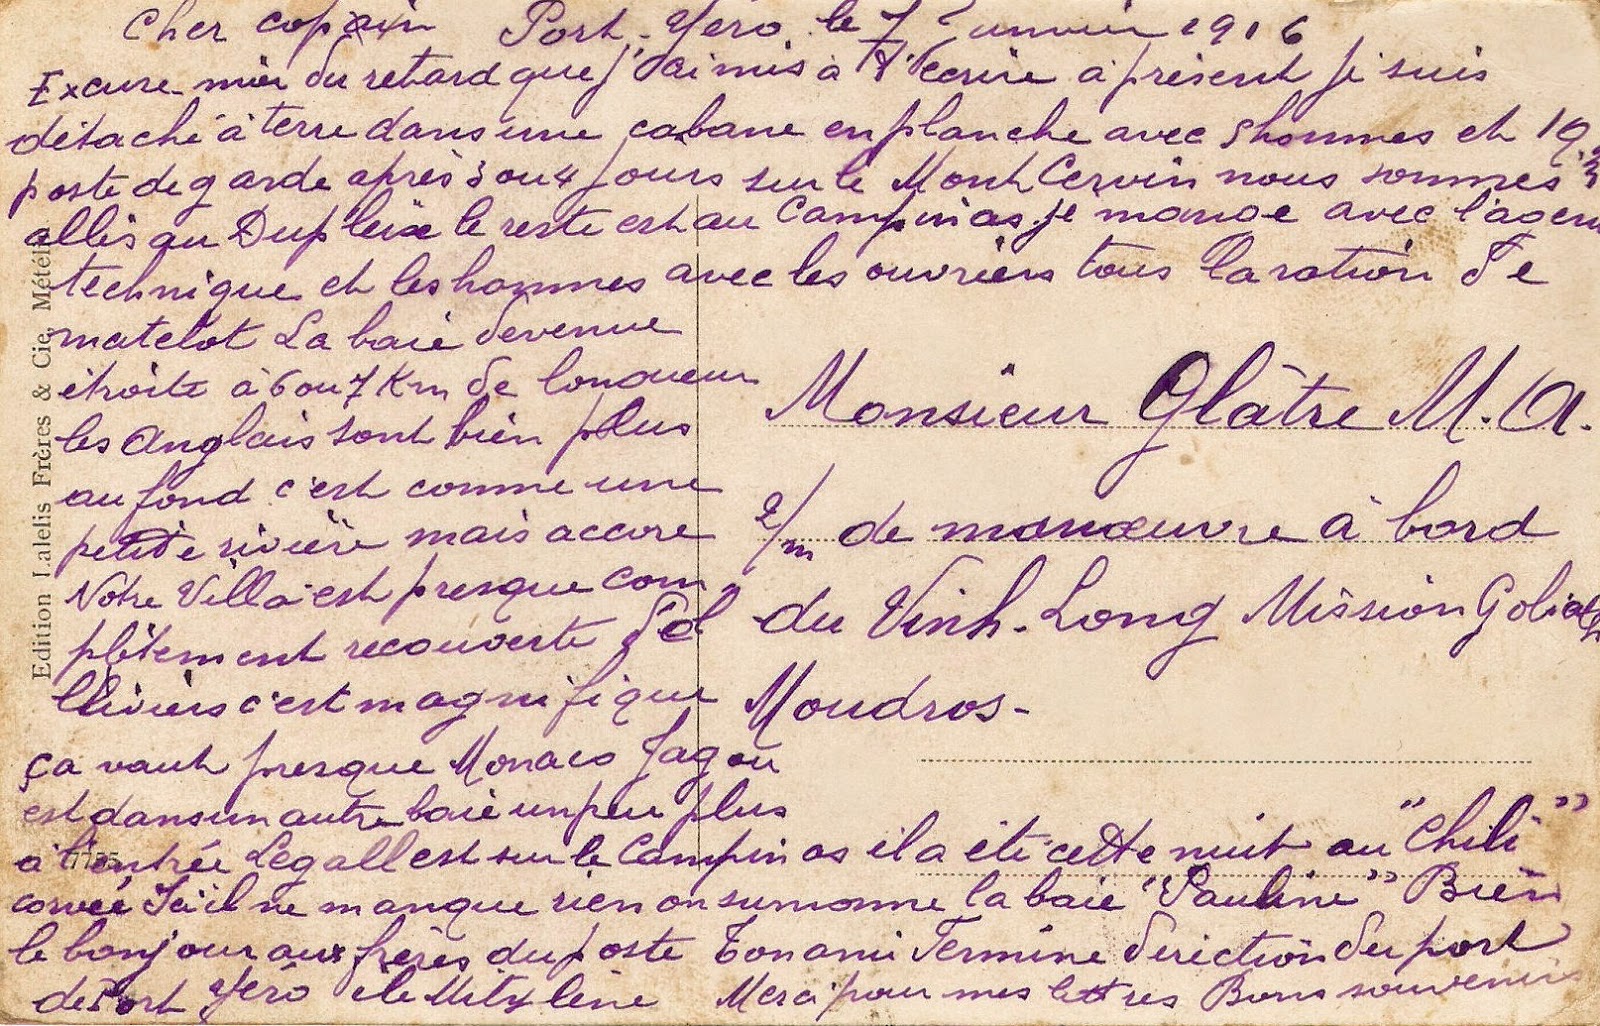 Cher copain Port-Yéro le 7 Janvier 1916
Excuse-moi du retard que j'ai mis à t'écrire à présent je suis
détaché à terre dans une cabane en planche avec 5 hommes et 1 q.
poste de garde après 3 ou 4 jours sur le Mont Cervin nous sommes
allés au Dupleix le reste est au Campinas je mange avec l'agent
technique et les hommes avec les ouvriers tous la ration de
matelot La baie devenue
étroite à 6 ou 7 Km de longueur
les Anglais sont bien plus
au fond c'est comme une
petite rivière mais accore
Notre Villa est presque com
plètement recouverte d'o
lliviers c'est magnifique
ça vaut presque Monaco Jagou
est dans un autre baie un peu plus
à l'entrée Legall est sur le Campinas il a été cette nuit au "Chili"
corvée Ici il ne manque rien on surnomme la baie "Pauline" Bien
le bonjour aux frères du poste Ton ami Termine direction du port
de Port Yéro île Mitylène Merci pour mes lettres Bons souvenirs
Monsieur Glâtre M. A.
2/m de manœuvre à bord
du Vinh-Long Mission Goliath
Moudros-
Edition Lalelis Frères & Cie, Mételin